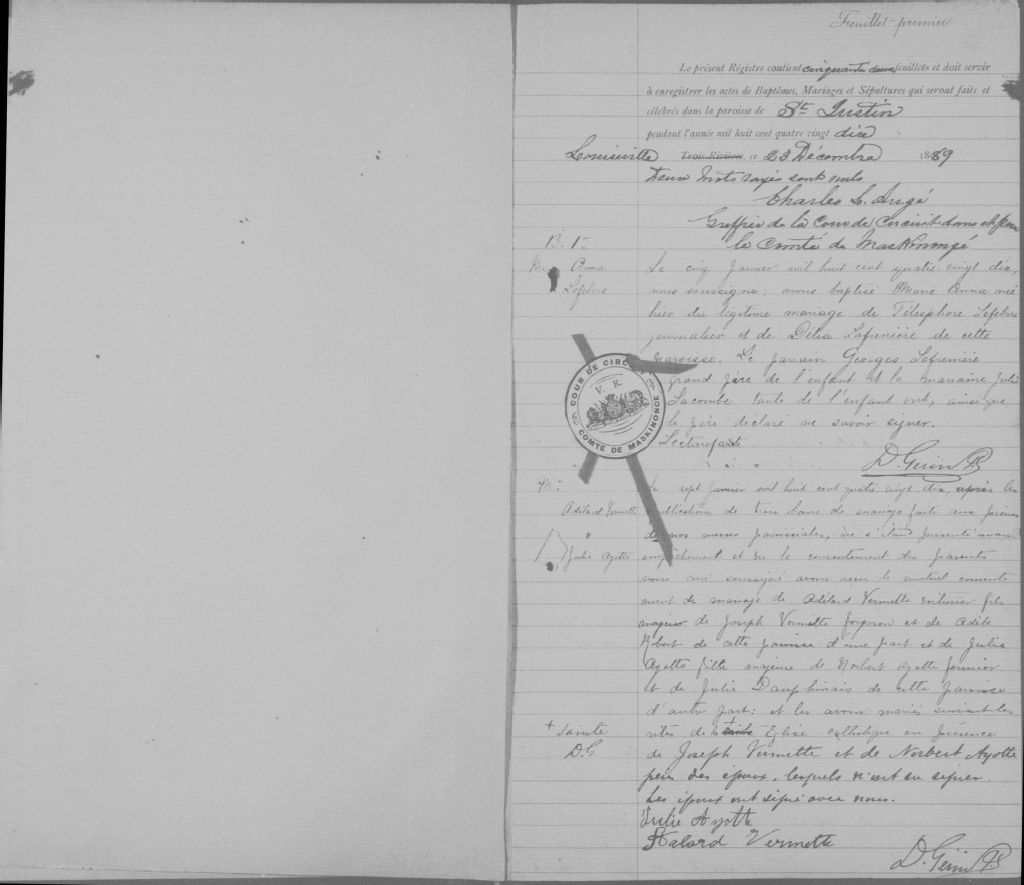 Feuillet premier
Le présent Régistre contient cinquante deux feuillets et doit servir
à enregistrer les actes de Baptêmes, Mariages et Sépultures qui seront faits et
célébrés dans la paroisse de St Justin
pendant l'année mil huit cent quatre vingt dix
Louiseville Trois-Rivières, ce 23 Décembre 1889
Deux mots rayés sont nuls
Charles L. Augé
Greffier de la Cour de Circuit dans et pour
le Comté de Maskinongé
B. 1er
M. Anna
Lefebvre
Le cinq Janvier mil huit cent quatre-vingt dix,
nous soussigné, avons baptisé Marie Anna née
hier du légitime mariage de Télesphore Lefebvre
journalier et de Délia Lafrenière de cette
paroisse. Le parrain Georges Lafrenière
grand père de l'enfant et la marraine Julie
Lacombe tante de l'enfant ont, ainsi que
le père déclaré ne savoir signer.
Lecture faite
D. Gérin
COUR DE CIRCUIT
V. R.
COMTÉ DE MASKINONGE
M.
Adélard Vermette
&
Julie Ayotte
Le sept Janvier mil huit cent quatre vingt dix, après la
publication de trois bans de mariage faite aux prônes
de nos messes paroissiales, ne s'étant présenté aucun
empêchement et vu le consentement des parents
nous curé soussigné avons reçu le mutuel consente
ment de mariage de Adélard Vermette voiturier fils
majeur de Joseph Vermette forgeron et de Adèle
Robert de cette paroisse d'une part et de Julie
Ayotte fille majeure de Norbert Ayotte fermier
et de Julie Dauphinais de cette paroisse
d'autre part: et les avons mariés suivant les
rites de la + sainte Eglise catholique en présence
+ sainte
D. G.
de Joseph Vermette et de Norbert Ayotte
père des époux, lesquels n'ont su signer.
Les époux ont signé avec nous.
Julie Ayotte
Adélard Vermette
D. Gérin